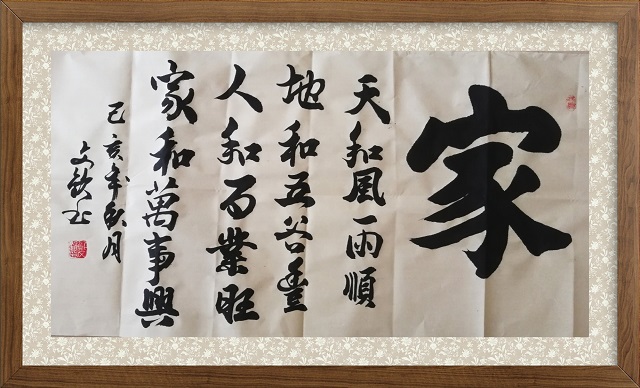 家
天和風雨順
地和五谷豐
人和百業旺
家和萬事興
己亥年秋月